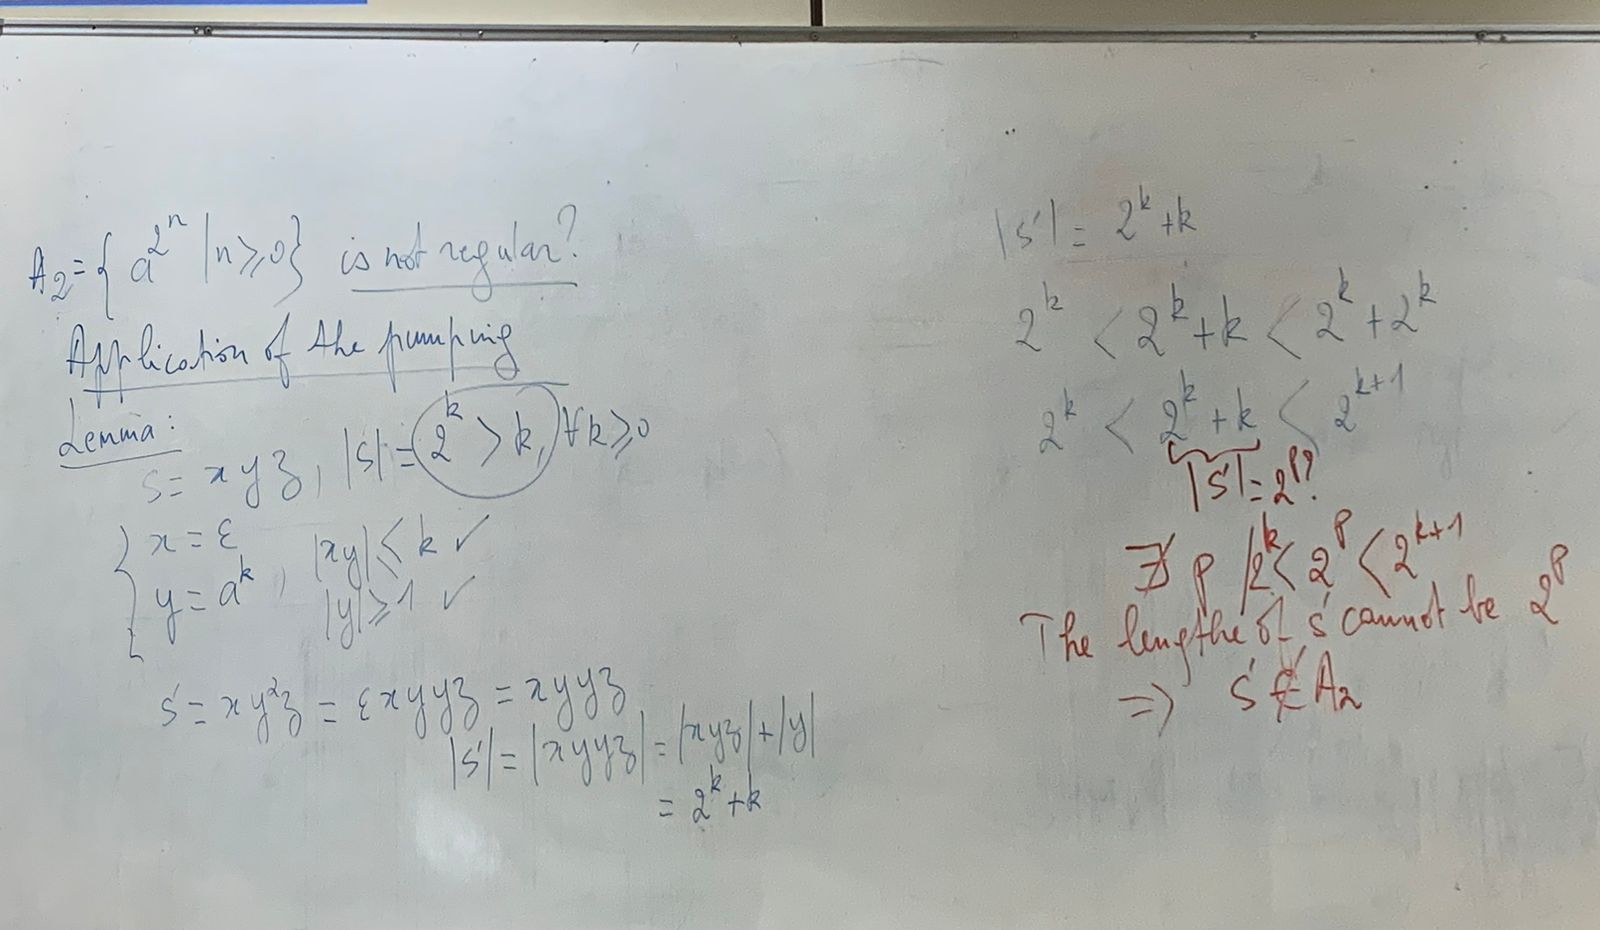 A₂ = { a^{2^n} | n ≥ 0 } is not regular?
Application of the pumping
Lemma:
s = xyz, |s| = 2^k > k, ∀k ≥ 0
x = ε
y = a^k, |xy| ≤ k ✓
|y| ≥ 1 ✓
s' = xy²z = εxyyz = xyyz
|s'| = |xyyz| = |xyz| + |y|
= 2^k + k
|s'| = 2^k + k
2^k < 2^k + k < 2^k + 2^k
2^k < 2^k + k < 2^{k+1}
|s'| = 2^p?
∄ p | 2^k < 2^p < 2^{k+1}
The lengthe of s' cannot be 2^p
⇒ s' ∉ A₂